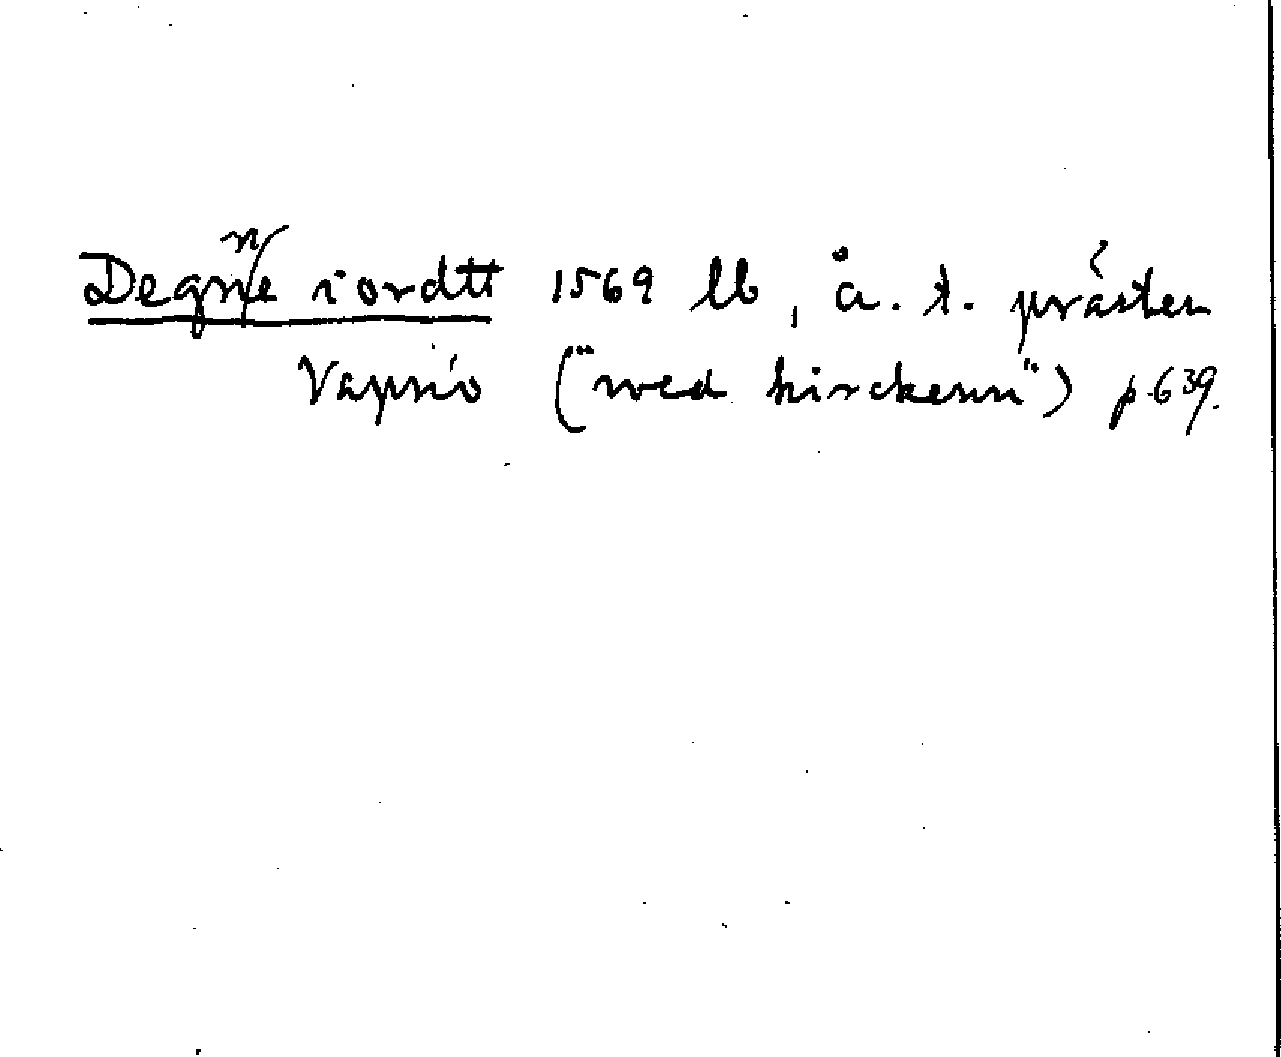 Degne iordtt 1569 lb, å. t. prästen
Vapnö ("wed kirckenn") p.639.